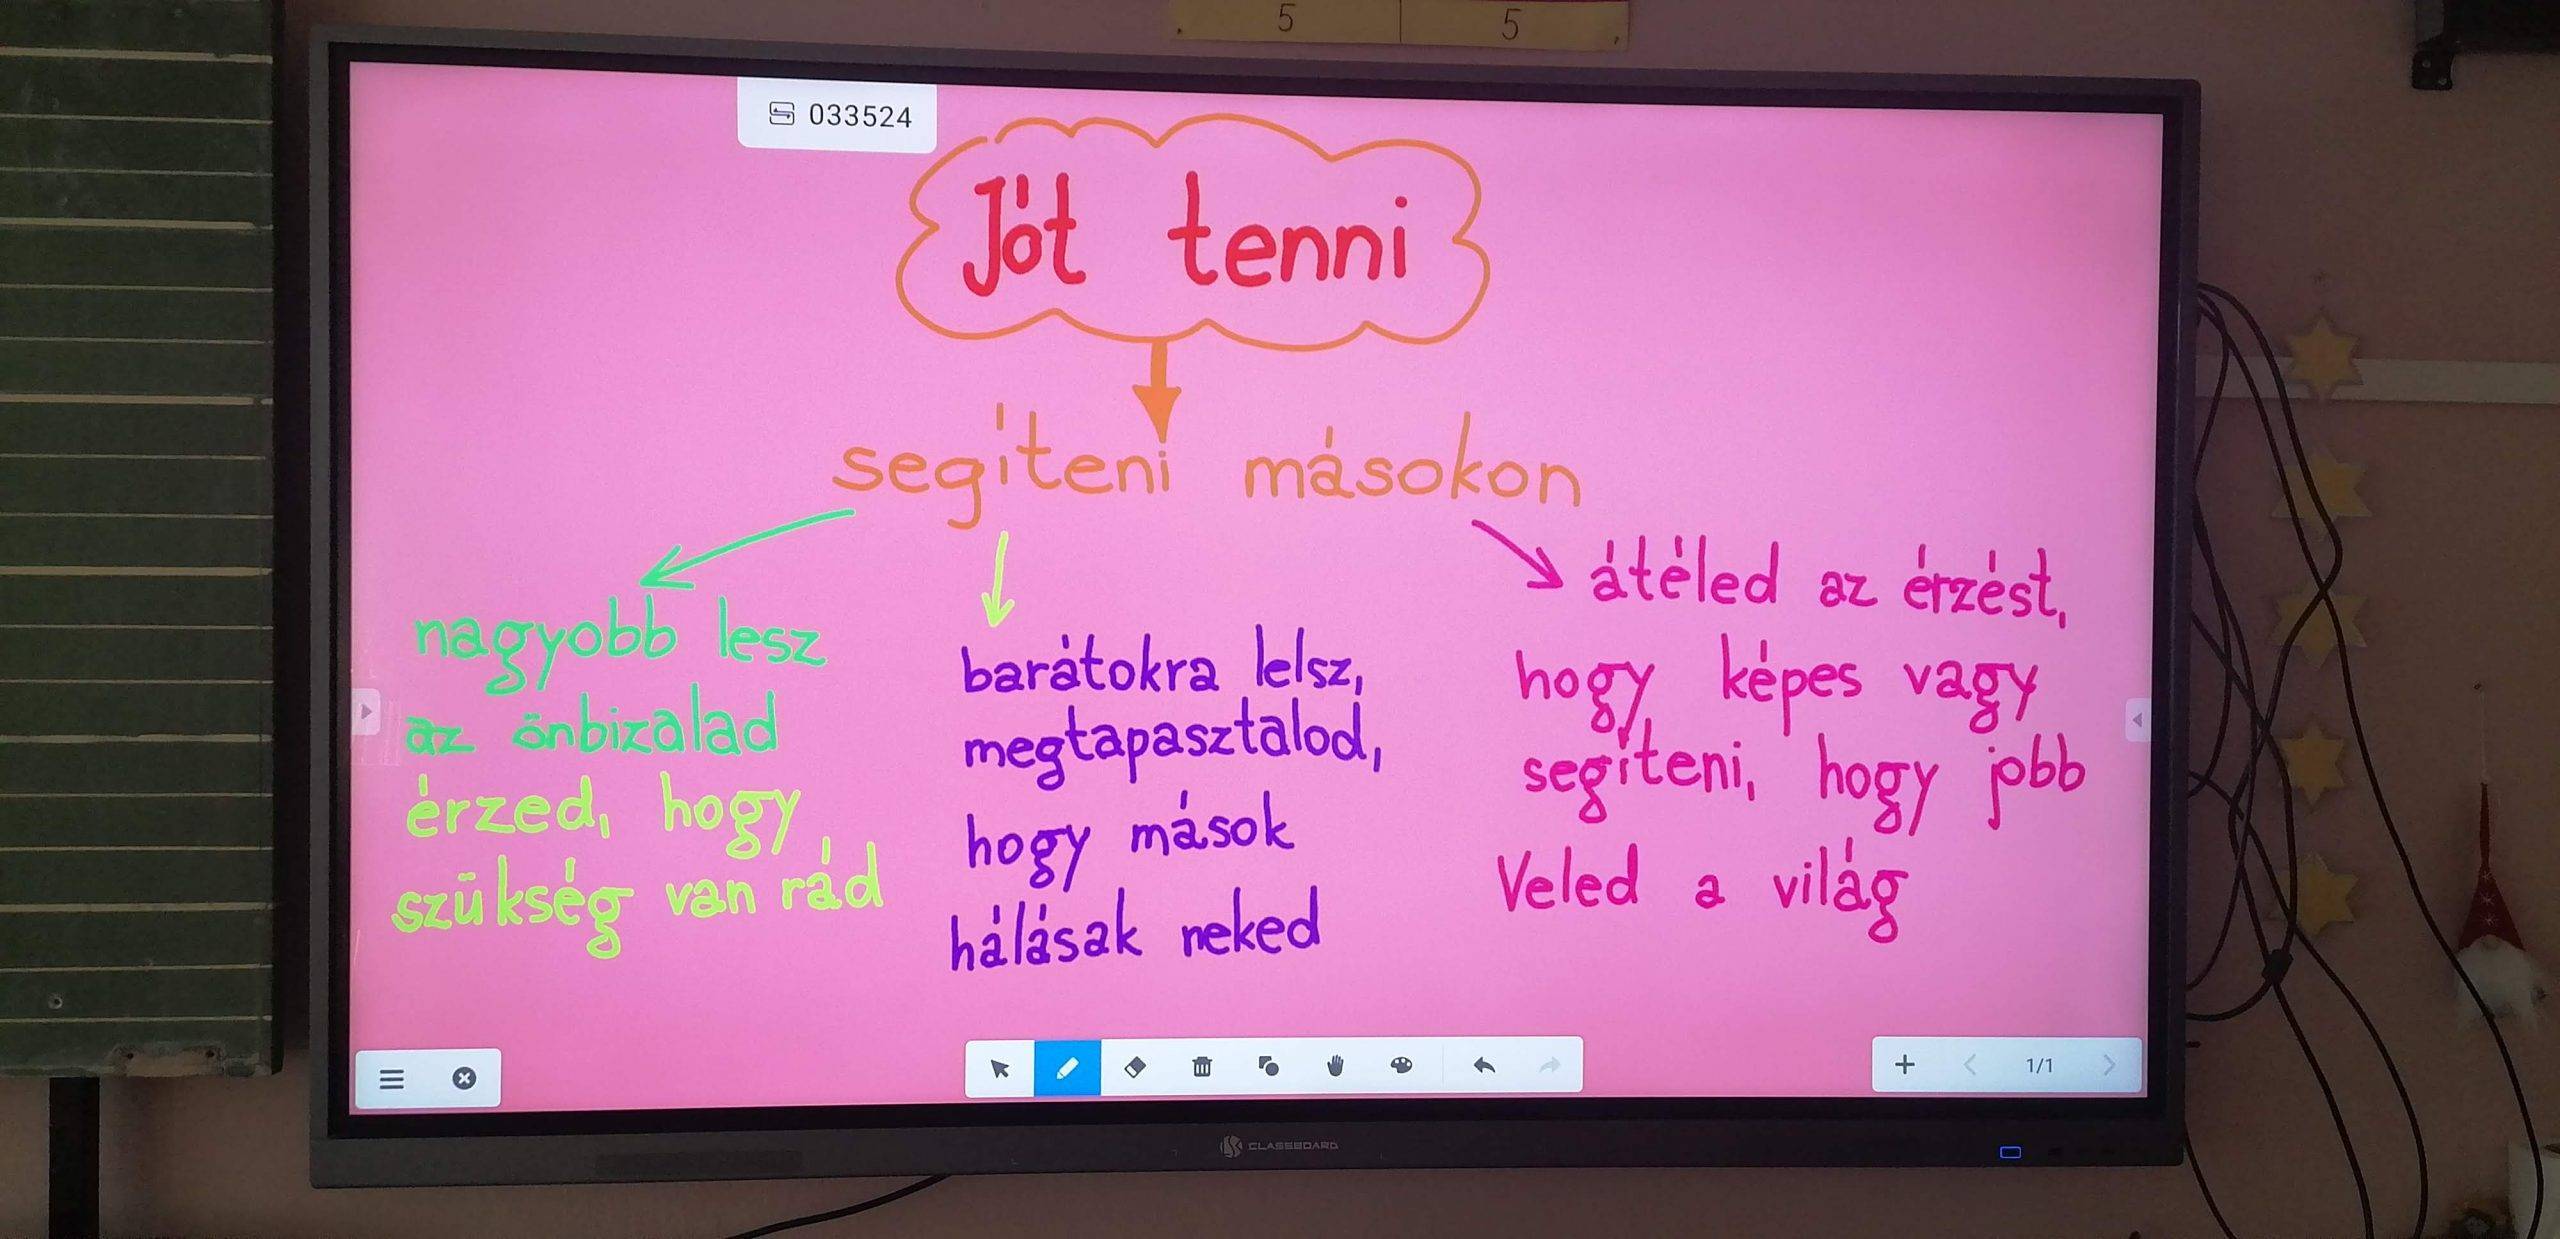 5 5
033524
Jót tenni
segíteni másokon
nagyobb lesz
az önbizalad
érzed, hogy
szükség van rád
barátokra lelsz,
megtapasztalod,
hogy mások
hálásak neked
átéled az érzést,
hogy képes vagy
segíteni, hogy jobb
Veled a világ
1/1
CLASSBOARD